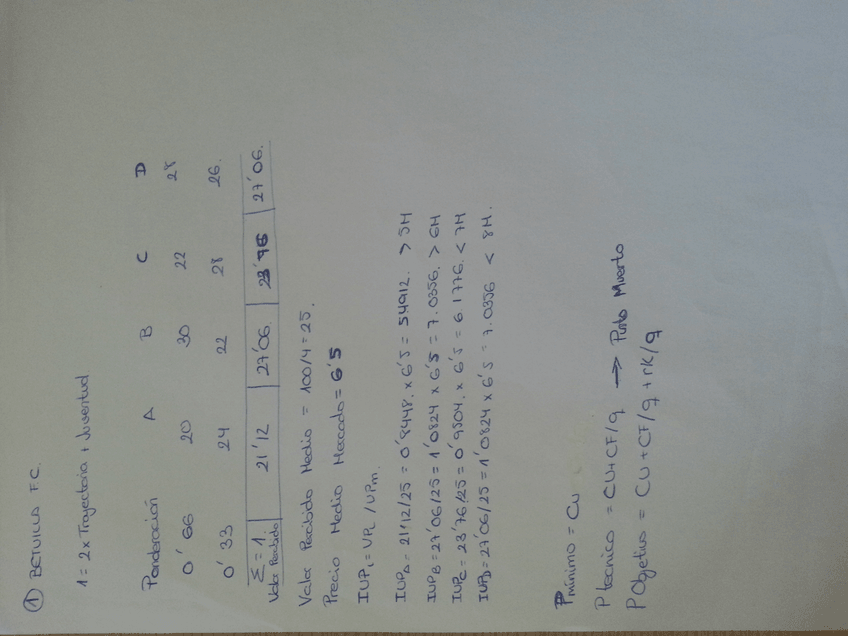 ① BETVILLA F.C.
1 = 2x Trayectoria + Juventud
Ponderación A B C D
0'66 20 30 22 28
0'33 24 22 28 26.
Σ = 1. 21'12 27'06. 23'76 27'06.
Valor Percibido
Valor Percibido Medio = 100/4 = 25.
Precio Medio Mercado = 6'5
IUPi = VPi / VPm.
IUPA = 21'12/25 = 0'8448. x 6'5 = 5'4912. > 5M
IUPB = 27'06/25 = 1'0824 x 6'5 = 7.0356. > 6M
IUPC = 23'76/25 = 0'9504. x 6'5 = 6.1776. < 7M
IUPD = 27'06/25 = 1'0824 x 6'5 = 7.0356 < 8M.
Pmínimo = CU
Ptecnico = CU + CF/q → Punto Muerto
PObjetivo = CU + CF/q + rK/q